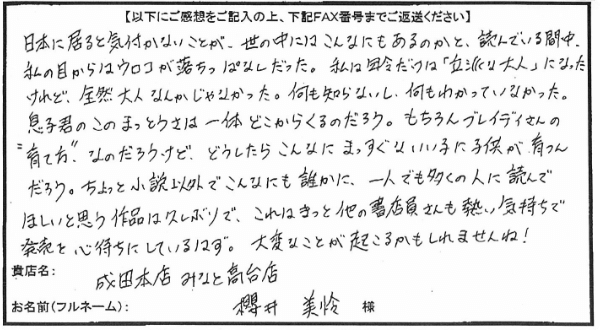 【以下にご感想をご記入の上、下記FAX番号までご返送ください】
日本に居ると気付かないことが、世の中にはこんなにもあるのかと、読んでいる間中、
私の目からはウロコが落ちっぱなしだった。私は年令だけは「立派な大人」になった
けれど、全然大人なんかじゃなかった。何も知らないし、何もわかっていなかった。
息子君のこのまっとうさは一体どこからくるのだろう。もちろんブレイディさんの
"育て方"なのだろうけど、どうしたらこんなにまっすぐないい子に子供が育つん
だろう。ちょっと小説以外でこんなにも誰かに、一人でも多くの人に読んで
ほしいと思う作品は久しぶりで、これはきっと他の書店員さんも熱い気持ちで
発売を心待ちにしているはず。大変なことが起こるかもしれませんね!
貴店名: 成田本店 みなと高台店
お名前(フルネーム): 櫻井 美怜 様